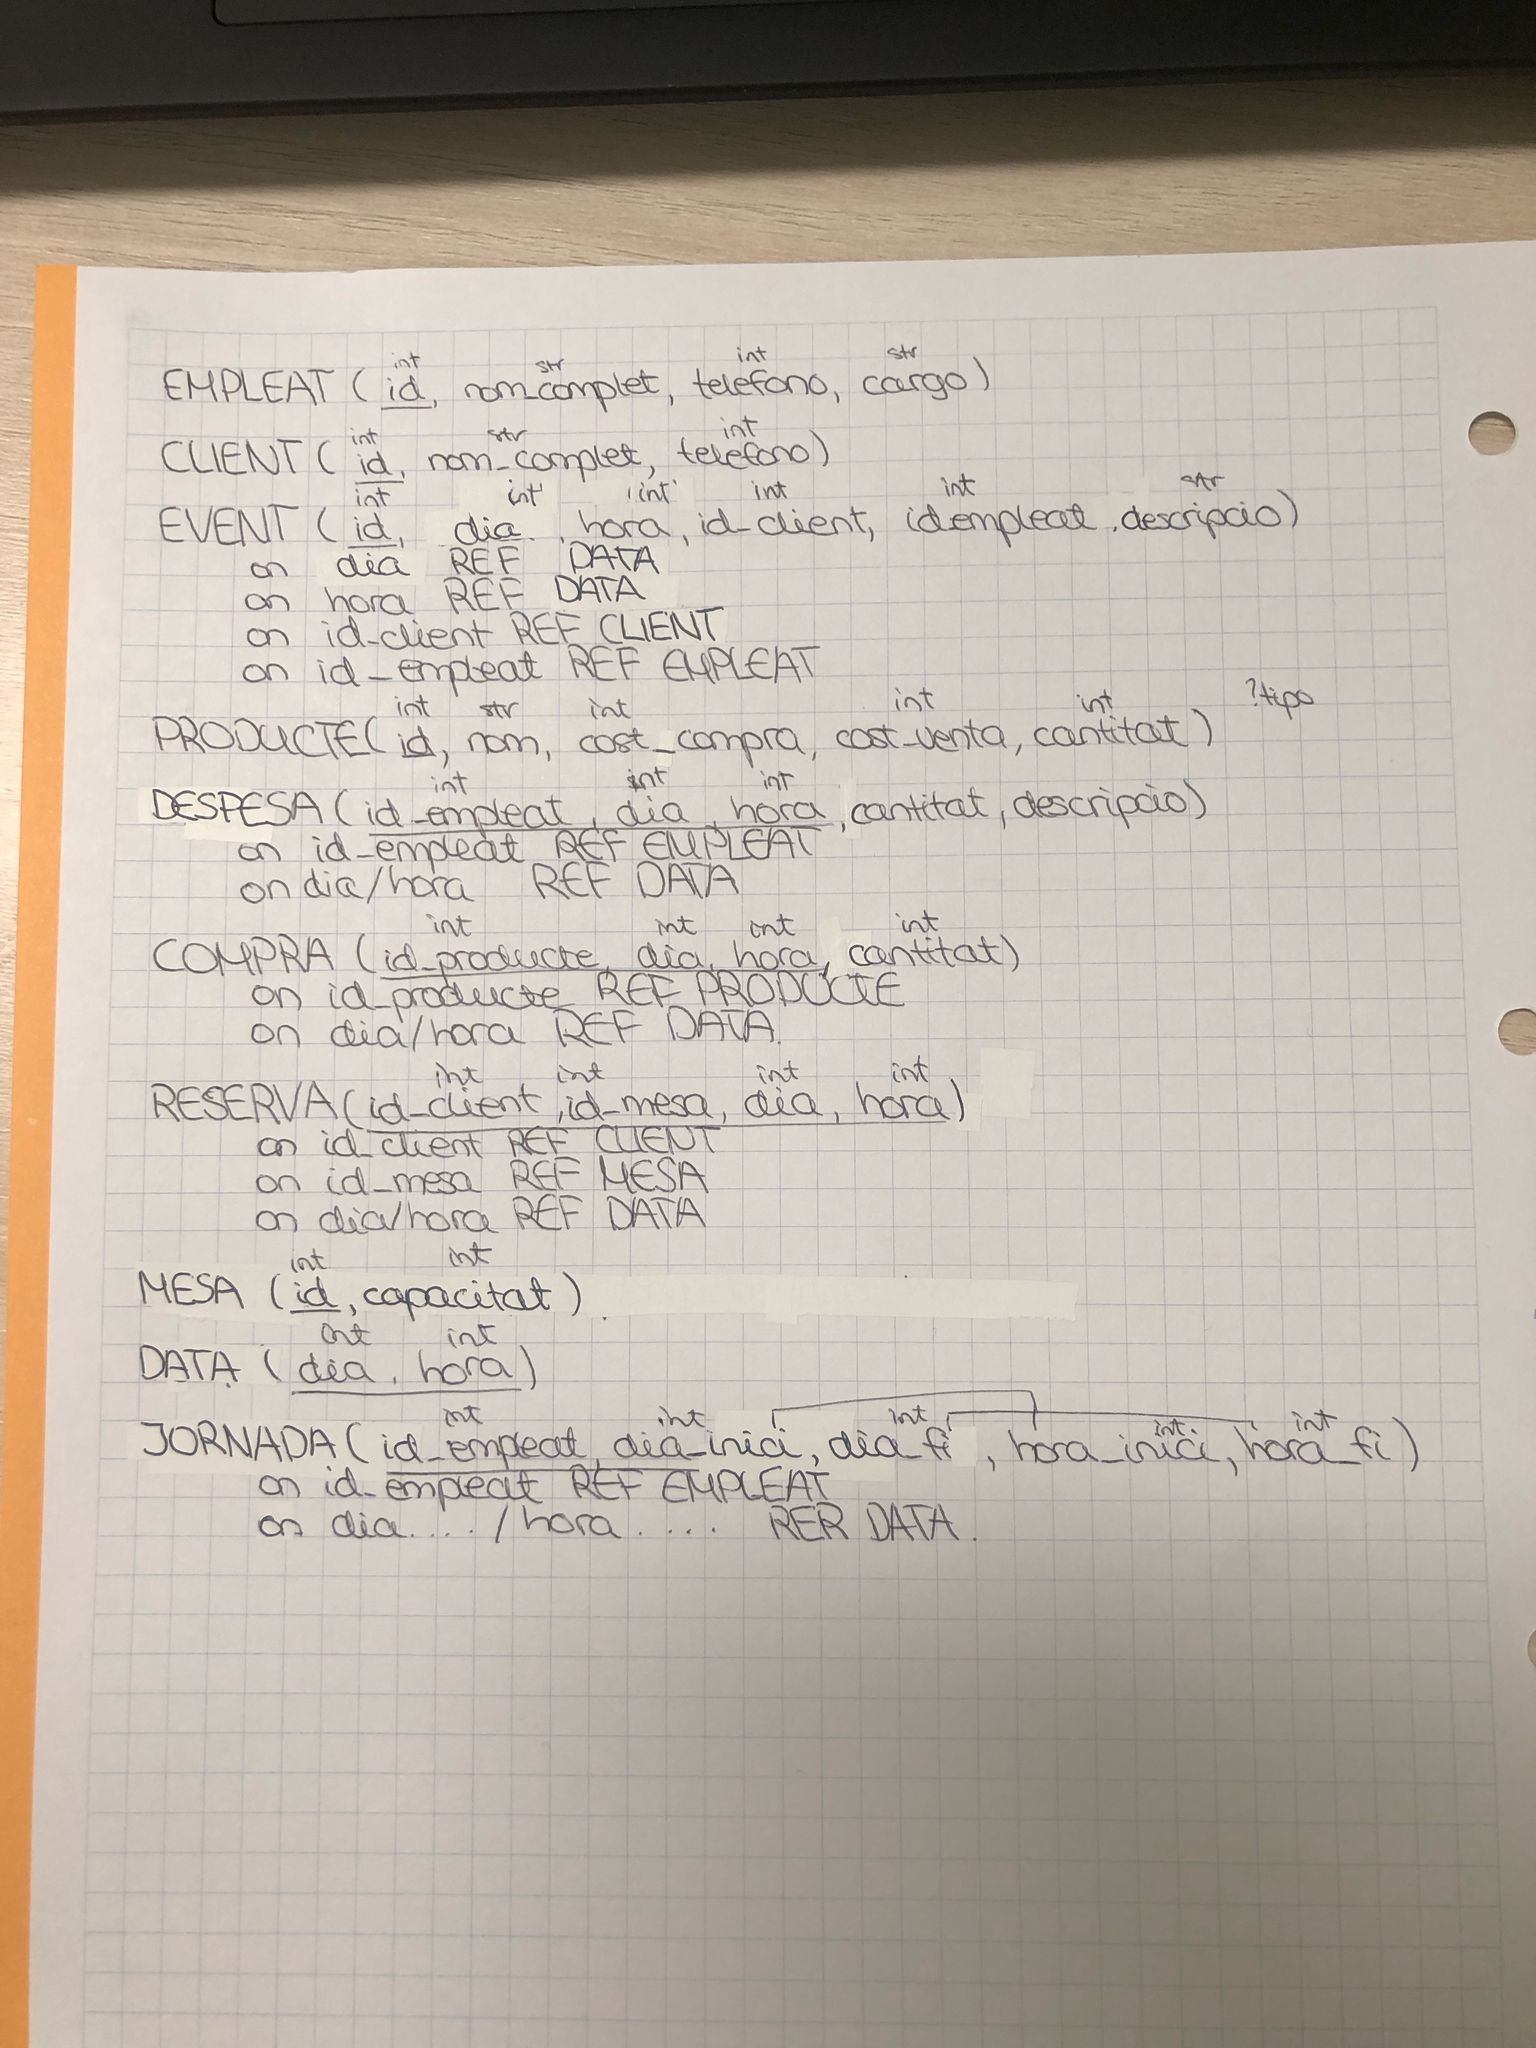 int str int str
EMPLEAT (id, nom_complet, telefono, cargo)
int str int
CLIENT (id, nom_complet, telefono)
int int int int int str
EVENT (id, dia, hora, id_client, id_empleat, descripcio)
on dia REF DATA
on hora REF DATA
on id_client REF CLIENT
on id_empleat REF EMPLEAT
int str int int int ?tipo
PRODUCTE(id, nom, cost_compra, cost_venta, cantitat)
int int int
DESPESA (id_empleat, dia, hora, cantitat, descripcio)
on id_empleat REF EMPLEAT
on dia/hora REF DATA
int int int int
COMPRA (id_producte, dia, hora, cantitat)
on id_producte REF PRODUCTE
on dia/hora REF DATA.
int int int int
RESERVA(id_client, id_mesa, dia, hora)
on id_client REF CLIENT
on id_mesa REF MESA
on dia/hora REF DATA
int int
MESA (id, capacitat)
int int
DATA (dia, hora)
int int int int int
JORNADA (id_empleat, dia_inici, dia_fi, hora_inici, hora_fi)
on id_empleat REF EMPLEAT
on dia..../hora..... RER DATA.